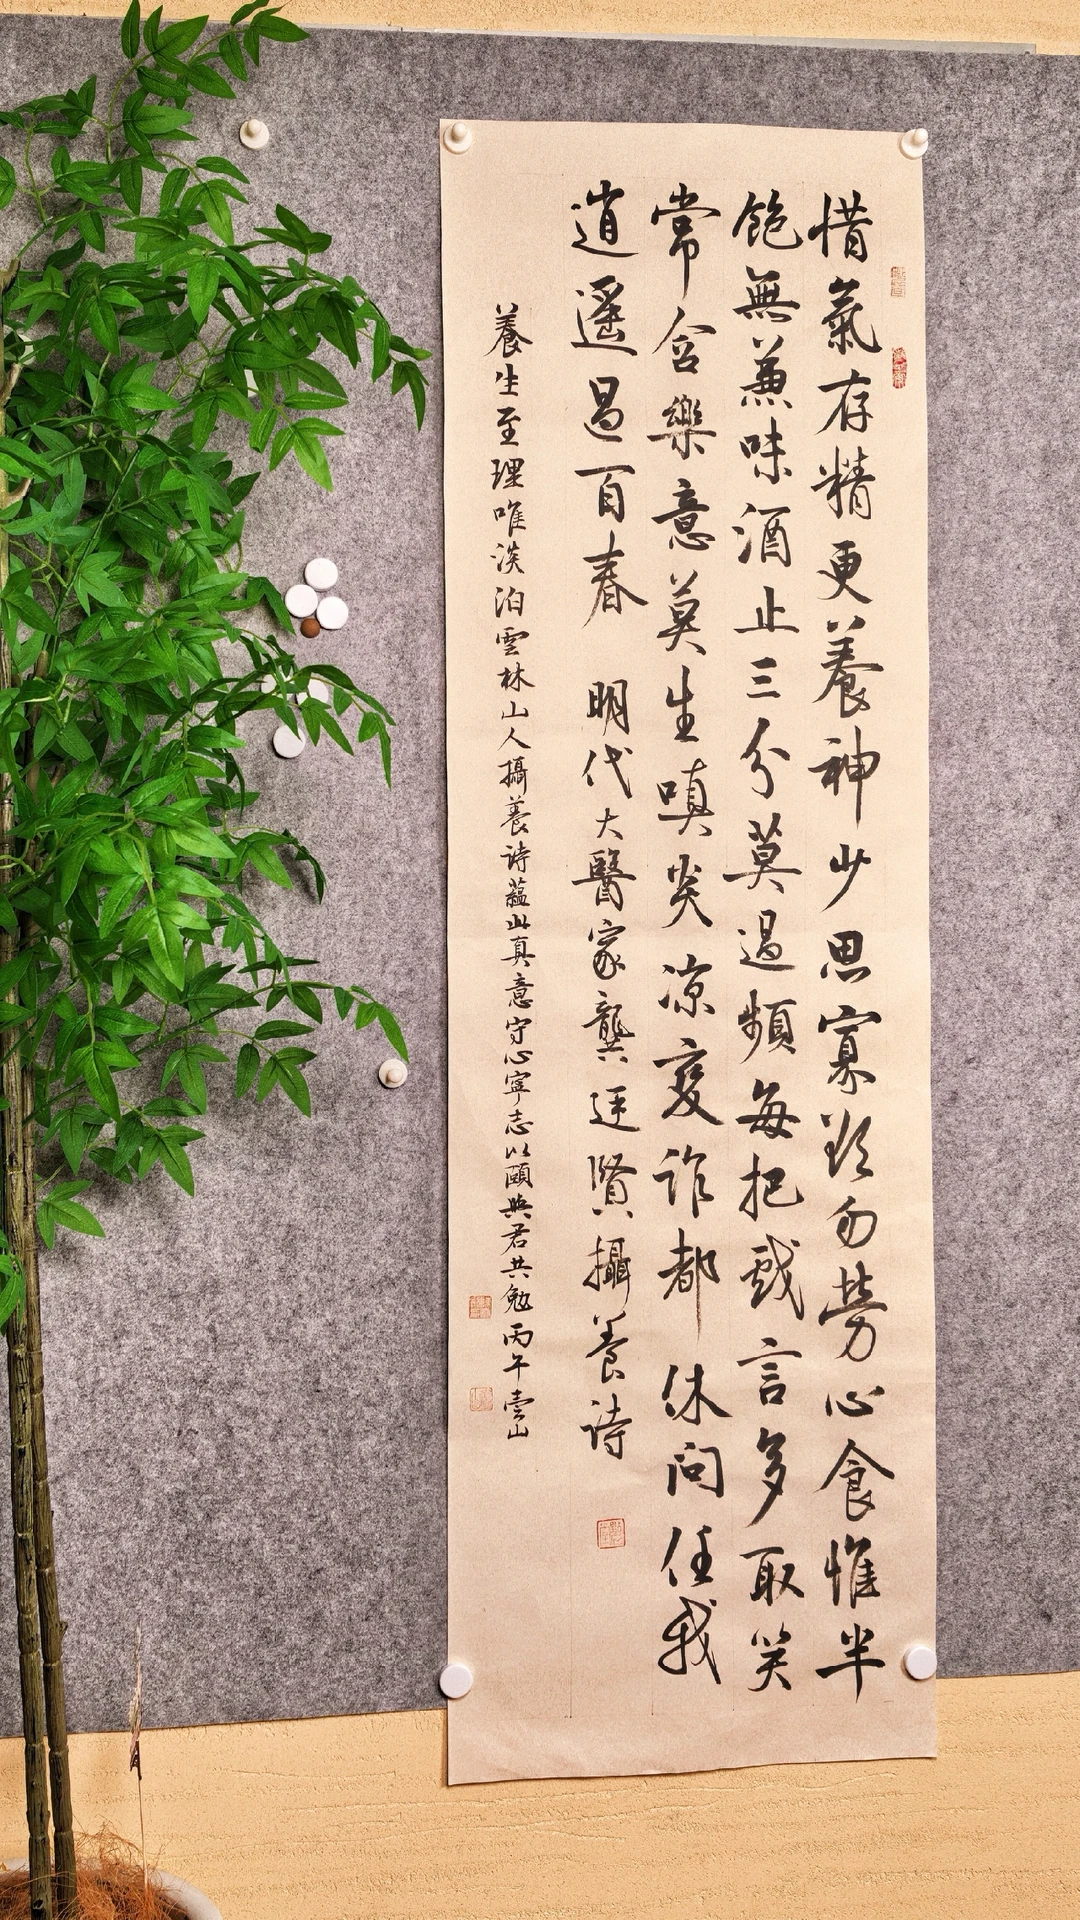 惜氣存精更養神少思寡欲勿勞心食惟半
飽無兼味酒止三分莫過頻每把戲言多取笑
常含樂意莫生嗔炎凉變詐都休問任我
逍遥過百春 明代大醫家龔廷賢攝養詩
養生至理唯淡泊雲林山人攝養詩蘊此真意守心寧志以頤與君共勉丙午壹山